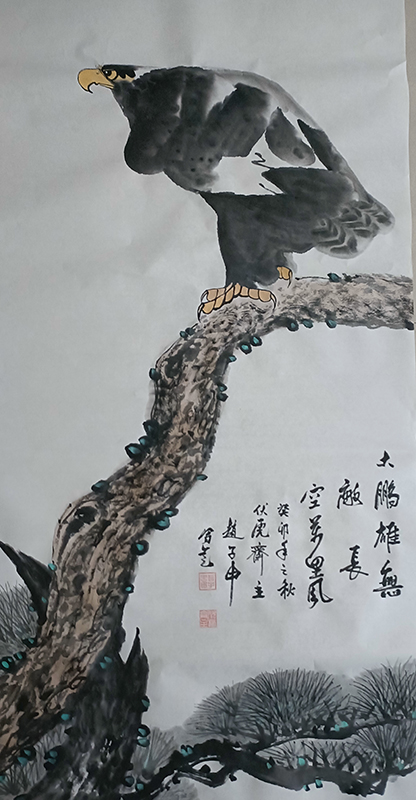 大鵬雄無
敵長
空萬里風
癸卯年之秋
伏虎齋主
趙子中